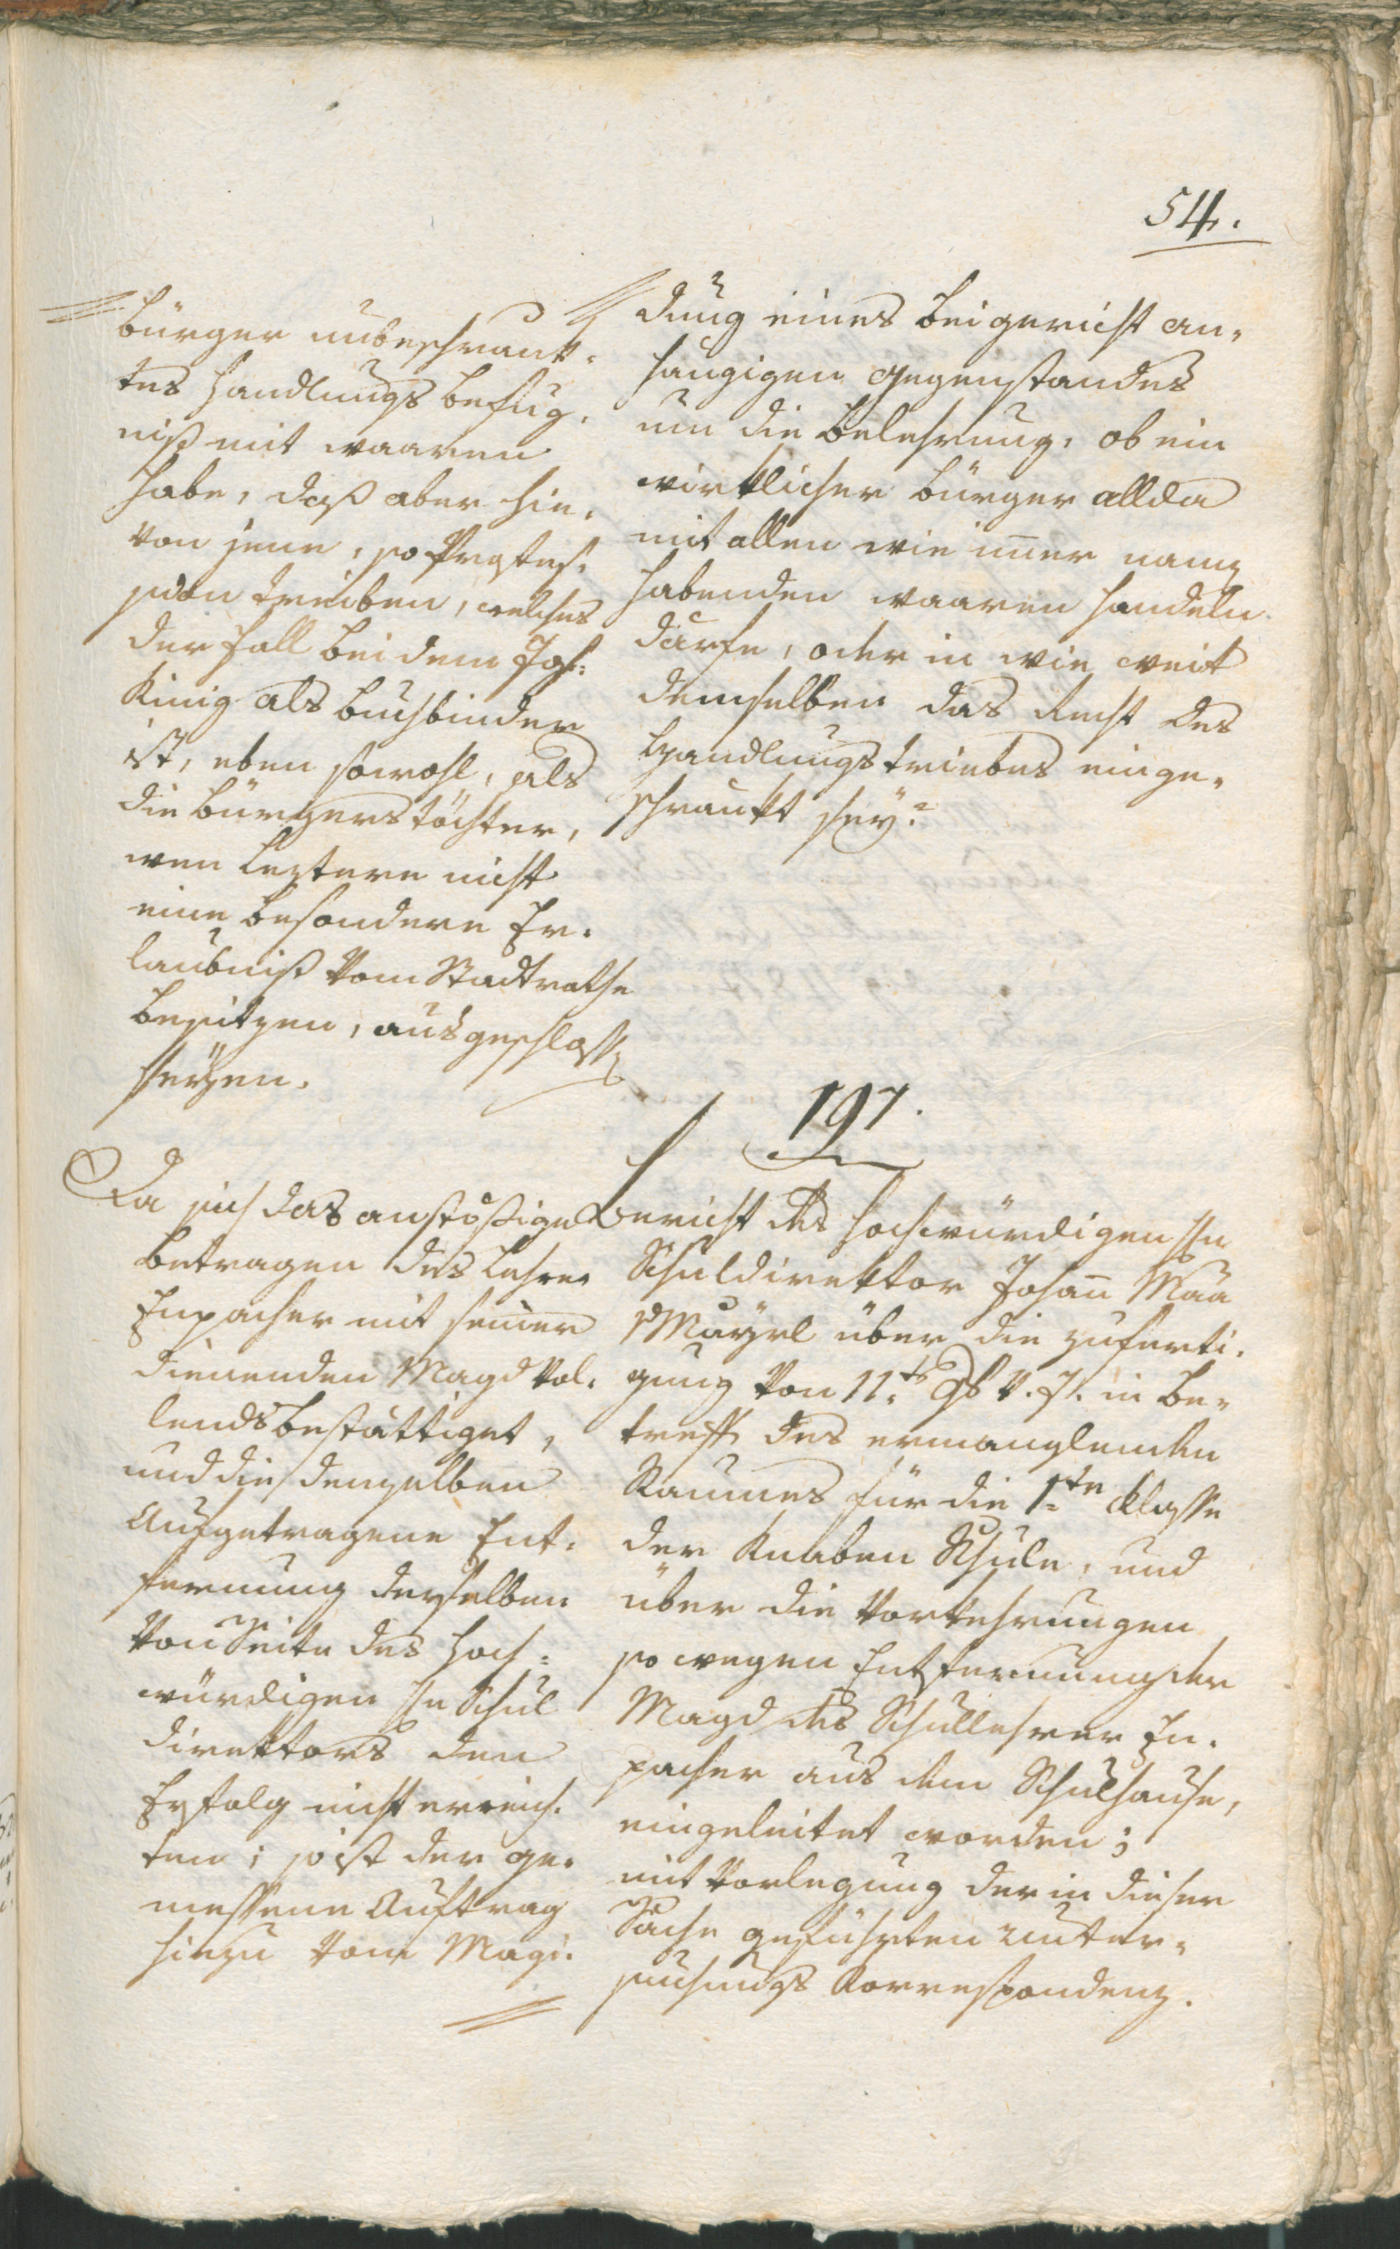 54.
bürger unbeschränk-
tes Handlungs befug-
niß mit waaren
habe, daß aber hie-
von jene, so Profes-
sion treiben, welches
der fall bei dem Joh:
König als buchbinder
ist, eben sowohl, als
die bürgerstöchter,
wen leztere nicht
eine besondere Er-
laubniß vom Stadtrathe
besitzen, ausgeschlossen
seÿen.
Da sich das anstößige
betragen des Lehrer
Enpacher mit seiner
dienenden Magd vol-
lends bestättiget,
und die demselben
Aufgetragene Ent-
fernung derselben
von Seite des Hoch-
würdigen Hn Schul
direktors den
Erfolg nicht erreich-
ten; so ist der ge-
messene Auftrag
hiezu vom Magi-
dung eines bei gericht an-
hängigen Gegenstandes
um die belehrung, ob ein
wirklicher bürger allda
mit allen wie imer namen
habenden waaren handeln
därfe, oder in wie weit
demselben das Recht des
Handlungstriebes einge-
schränkt seÿ?
197.
Bericht des hochwürdigen Hn
Schuldirektor Johan
Maÿrl über die zuferti-
gung von 11.ts 9b v. J. in be-
treff des ermanglenden
Raumes für die 1.te Klasse
der Knaben Schule, und
über die Vorkehrungen
so wegen Entfernung der
Magd des Schullehrer En-
pacher aus dem Schulhause,
eingeleitet worden;
mit Vorlegung der in dieser
Sache geführten unter-
suchungs Korrespondenz.